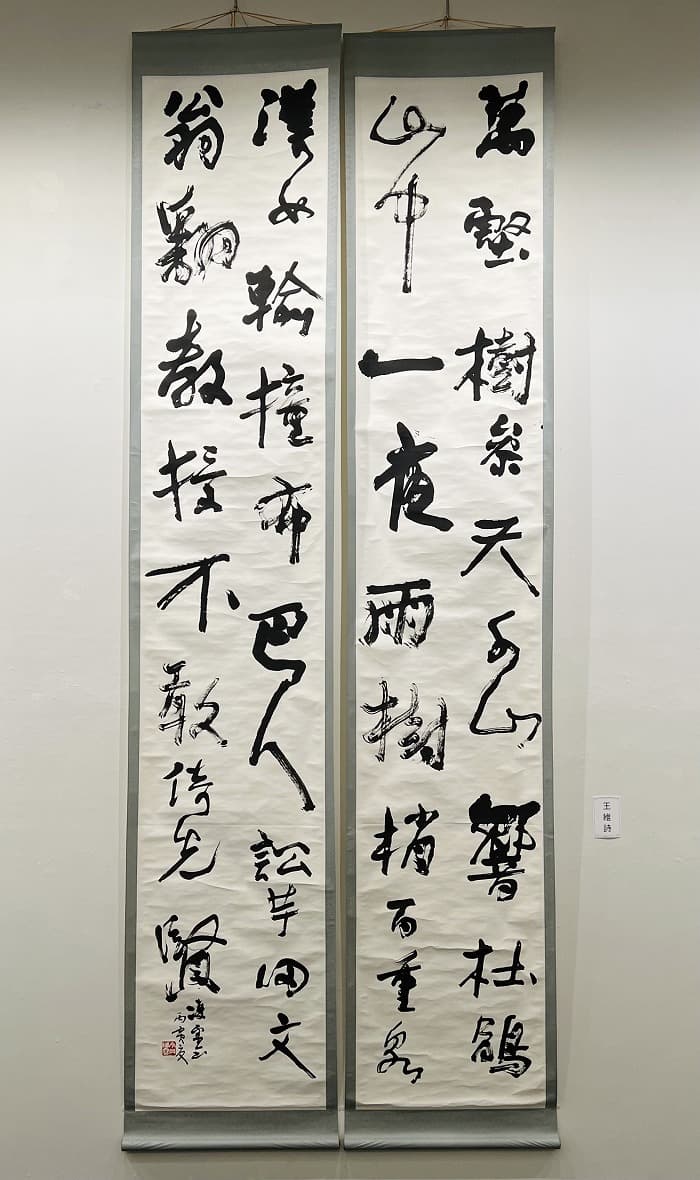 萬壑樹參天千山響杜鵑
山中一夜雨樹梢百重泉
漢女輸撞布巴人訟芋田文
翁翻教授不敢倚先賢
丙寅夏
王維詩